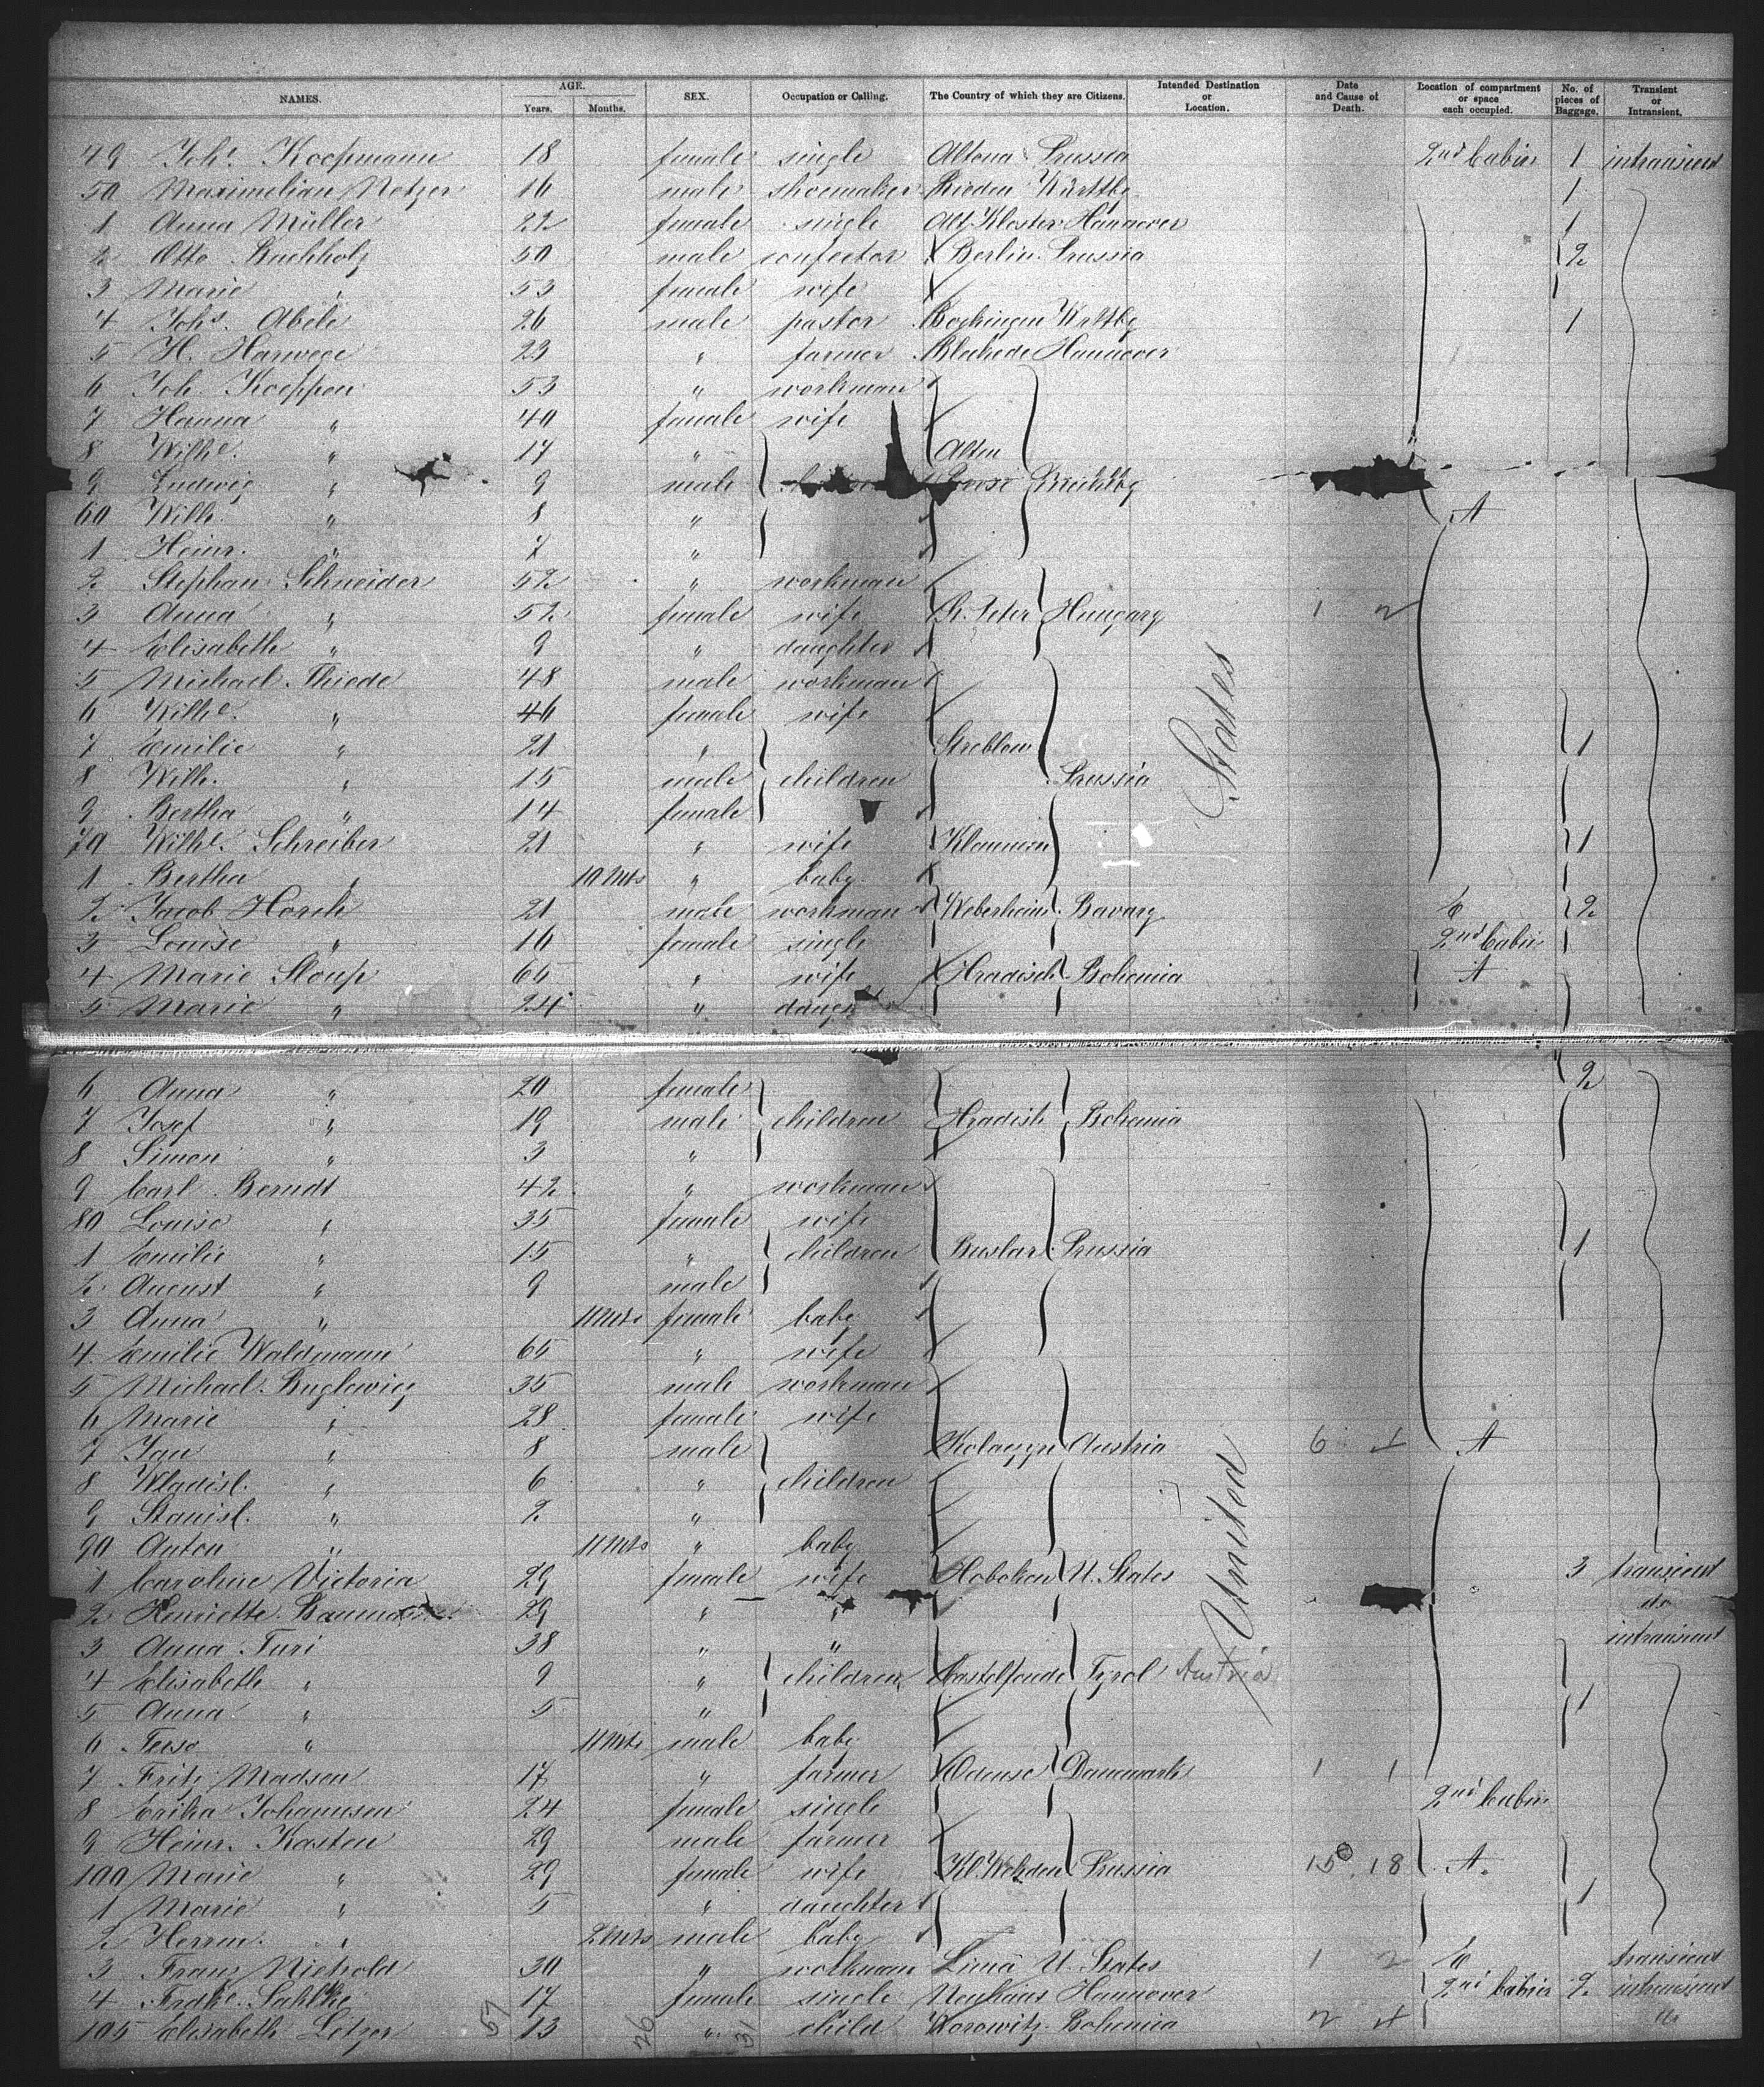 NAMES. AGE. Years. Months. SEX. Occupation or Calling. The Country of which they are Citizens. Intended Destination or Location. Date and Cause of Death. Location of compartment or space each occupied. No. of pieces of Baggage. Transient or Intransient.
49 Joh. Koopmann 18 female single Altona Prussia 2nd Cabin 1 intransient
50 Maximilian Netzer 16 male shoemaker Württbg 1
1 Anna Müller 22 female single Alt Kloster Hannover 1
2 Otto Buchholz 50 male confector Berlin Prussia 2
3 Marie " 53 female wife
4 Johs. Abele 26 male pastor 1
5 H. Harwege 23 " farmer Bleckede Hannover
6 Joh. Koeppen 53 " workman
7 Hanna " 40 female wife
8 Wilhe. " 17 " Alten
9 Ludwig " 9 male
60 Wilh. " 8 " A
1 Heinr. " 7 "
2 Stephan Schneider 52 " workman
3 Anna " 52 female wife St. Peter Hungary 1 2
4 Elisabeth " 9 " daughter
5 Michael Thiede 48 male workman
6 Wilhe. " 46 female wife
7 Emilie " 21 " Streblow 1
8 Wilh. " 15 male children Prussia States
9 Bertha " 14 female
70 Wilhe. Schreiber 21 " wife 1
1 Bertha " 10 Mts " baby
2 Jacob Horch 21 male workman Bavary C 2
3 Louise " 16 female single 2nd Cabin
4 Marie Stoup 65 " wife Hradisch Bohemia A
5 Marie " 24 "
6 Anna " 20 female 2
7 Josef " 19 male children Hradish Bohemia
8 Simon " 3 "
9 Carl Berndt 42 " workman
80 Louise " 35 female wife
1 Emilie " 15 " children Buslar Prussia 1
2 August " 9 male
3 Anna " 11 Mts female baby
4 Emilie Waldmann 65 " wife
5 Michael Buglewicz 35 male workman
6 Marie " 28 female wife
7 Jan " 8 male Austria 6 A
8 Wladisl. " 6 " children
9 Stanisl. " 2 " United
90 Anton " 11 Mts " baby
1 Caroline Victoria 29 female wife Hoboken U. States 3 transient
2 Henriette 29 " " do
3 Anna Turi 38 " " intransient
4 Elisabeth " 9 " children Castelfonde Tyrol Austria
5 Anna " 5 " 1
6 " 11 Mts male baby
7 Fritz Madsen 17 " farmer Odense Danemark 1 1
8 Erika Johannsen 24 female single 2nd Cabin
9 Heinr. Kasten 29 male farmer
100 Marie " 29 female wife Prussia 15 18 A.
1 Marie " 5 " daughter 1
2 Herrm. " 2 Mts male baby
3 Franz Niehold 30 " workman Lima U. States 1 2 C transient
4 Frdke. 17 female single Neuhaus Hannover 2nd Cabin 2 intransient
105 Elisabeth Letzer 57 13 26 " 31 child Horowitz Bohemia 2